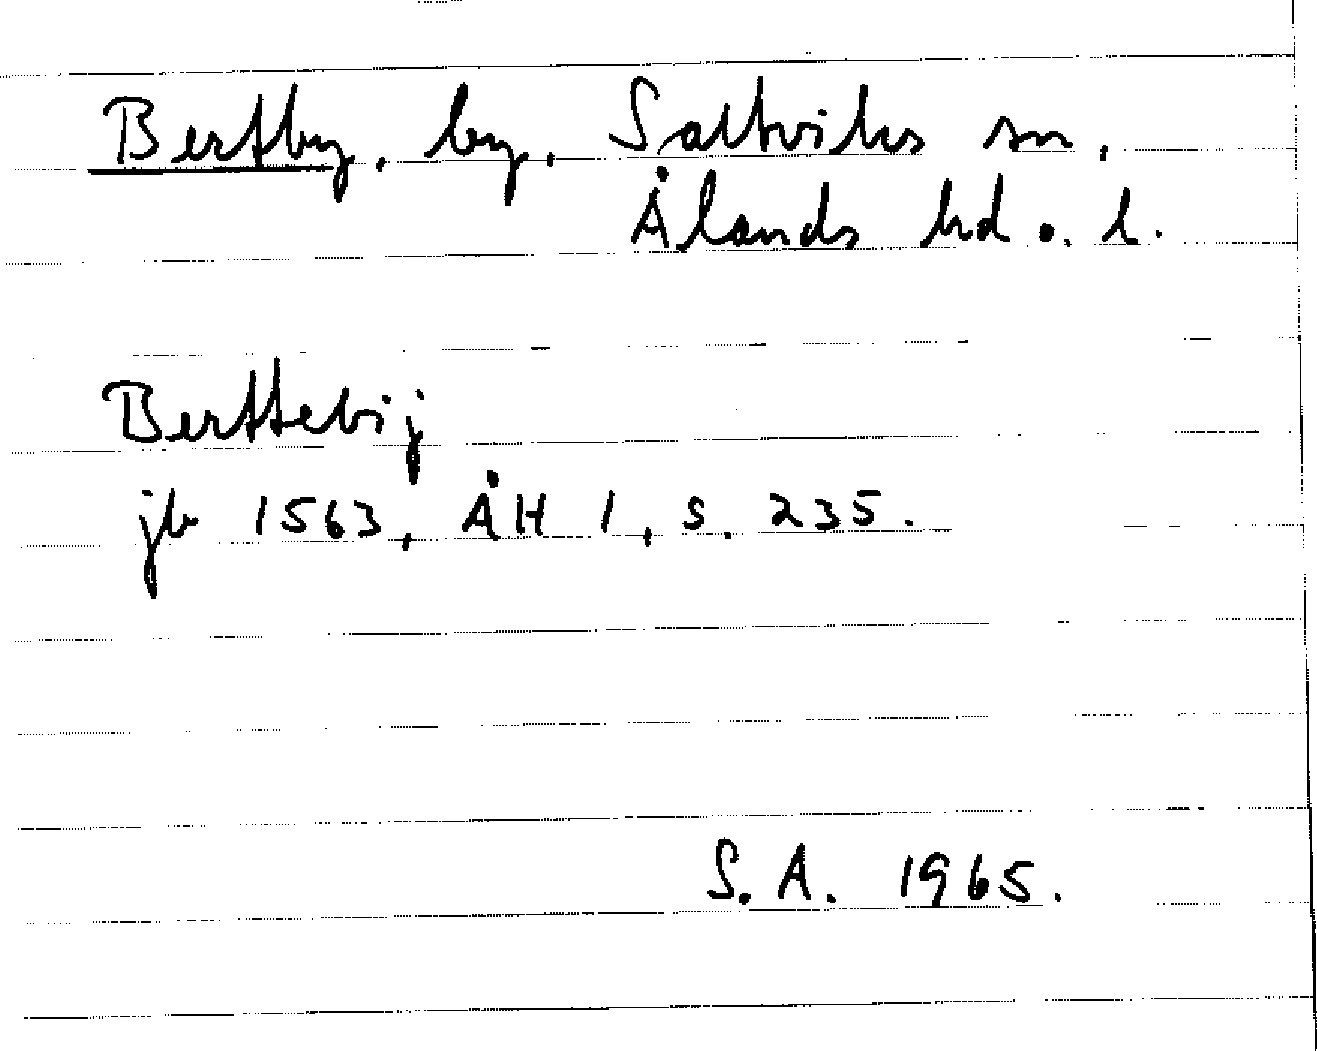 Bertby, by, Saltviks sn,
Ålands hd o. l.
Berttebij
jb 1563, ÅH 1, s. 235.
S. A. 1965.